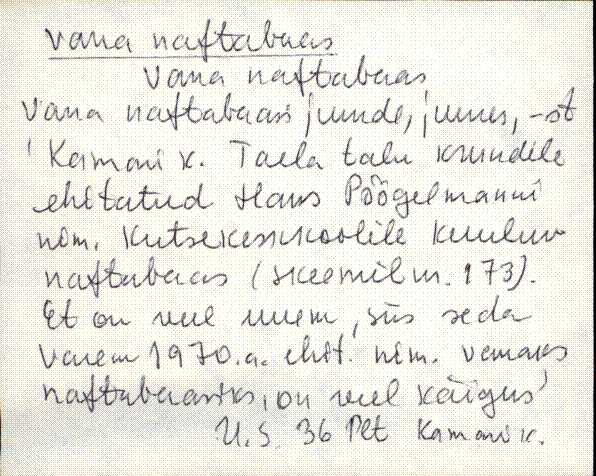 vana naftabaas
Vana naftabaas,
Vana naftabaasi juurde, juures, -st
' Kamari k. Taela talu krundile
ehitatud Hans Pöögelmanni
nim. Kutsekeskkoolile kuuluv
naftabaas (skeemil nr. 173).
Et on veel uuem, siis seda
varem 1970.a. ehit. nim. vanaks
naftabaasiks, on veel käigus'
U.S. 36 Plt Kamari k.